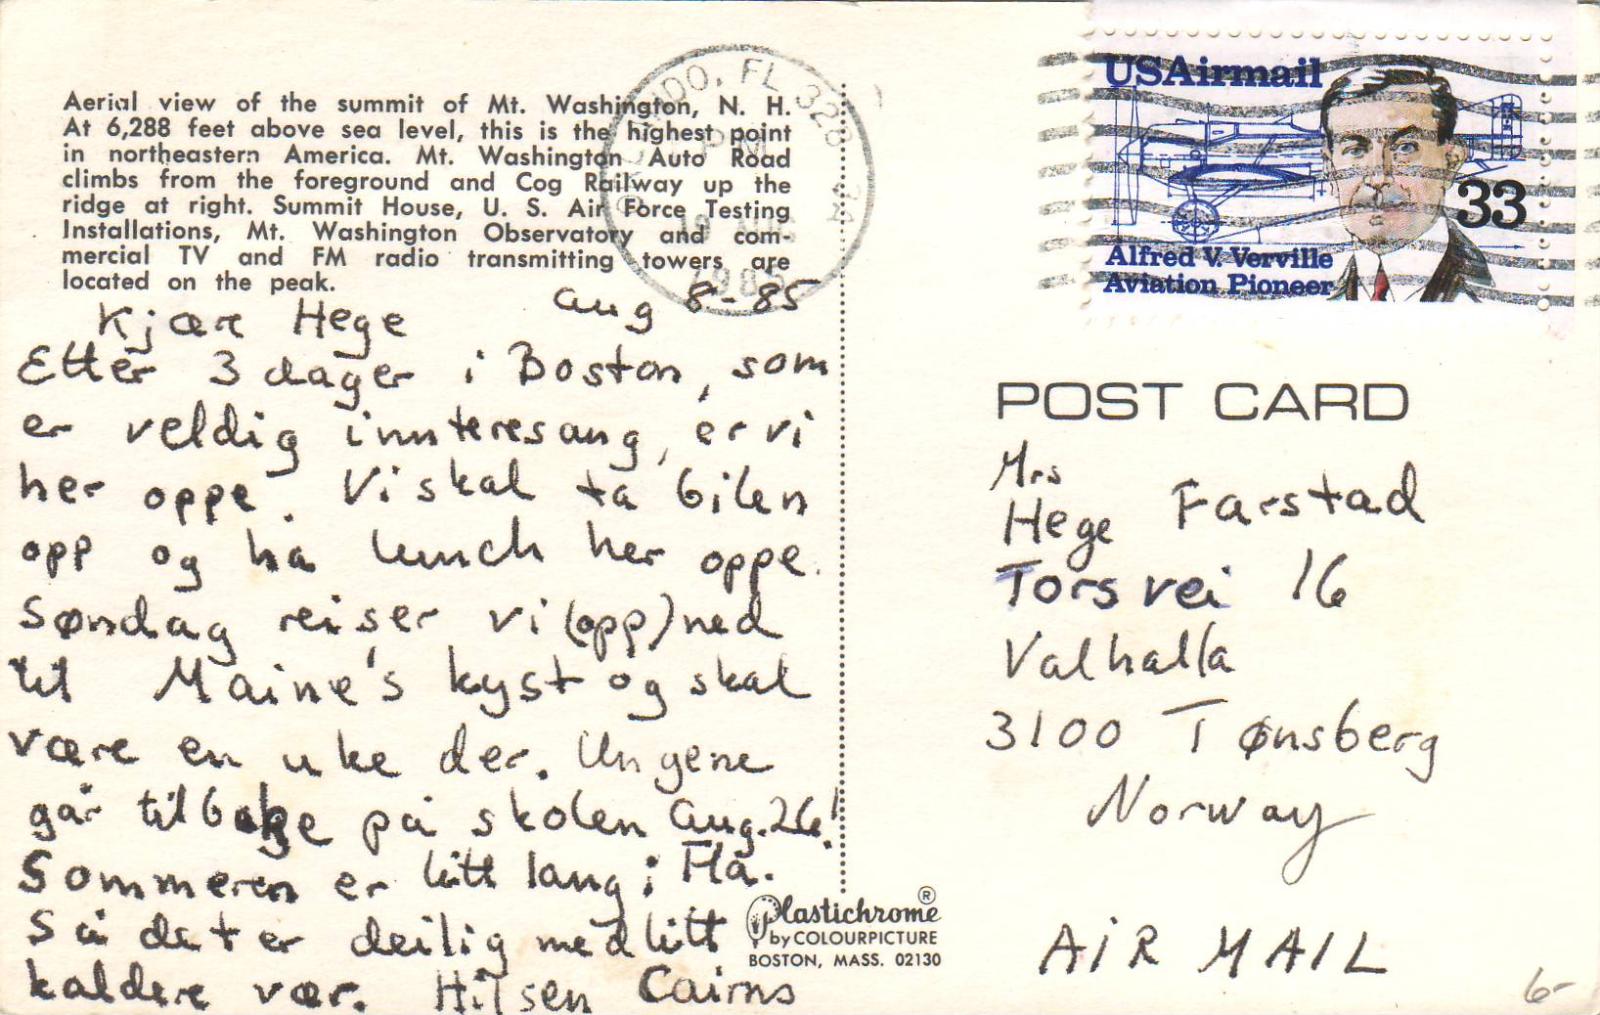 Aerial view of the summit of Mt. Washington, N. H.
At 6,288 feet above sea level, this is the highest point
in northeastern America. Mt. Washington Auto Road
climbs from the foreground and Cog Railway up the
ridge at right. Summit House, U. S. Air Force Testing
Installations, Mt. Washington Observatory and com-
mercial TV and FM radio transmitting towers are
located on the peak.
aug 8-85
Kjære Hege
Etter 3 dager i Boston, som
er veldig innteresang, er vi
her oppe. Vi skal ta bilen
opp og ha lunch her oppe.
Søndag reiser vi (opp) ned
til Maine's kyst og skal
være en uke der. Ungene
går tilbake på skolen Aug. 26!
Sommeren er litt lang i Fla.
Så det er deilig med litt
kaldere vær. Hilsen Cairns
Plastichrome ®
by COLOURPICTURE
BOSTON, MASS. 02130
FL 328
PM
1985
USAirmail
33
Alfred V. Verville
Aviation Pioneer
POST CARD
Mrs
Hege Farstad
Tors vei 16
Valhalla
3100 Tønsberg
Norway
AIR MAIL
6-